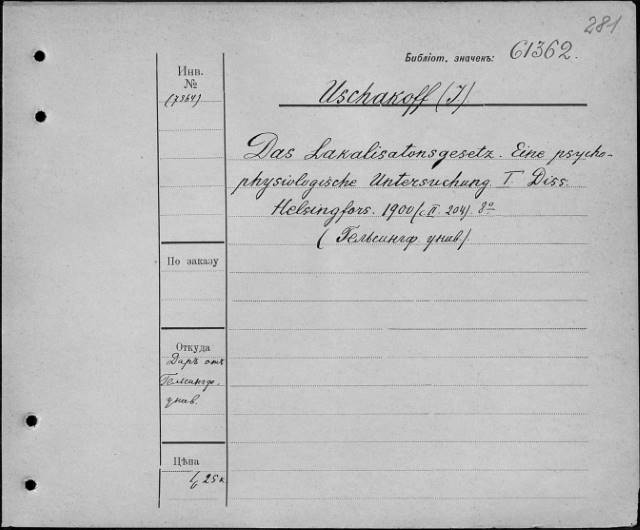 281
Библіот. значекъ: 61362.
Инв.
№
(7364)
Uschakoff (I).
Das Lakalisatonsgesetz. Eine psycho-
physiologische Untersuchung I. Diss.
Helsingfors. 1900 ( II. 204). 8º
(Гельсингф. унив.)
По заказу
Откуда
Даръ отъ
Гельсингф.
унив.
Цѣна
25 к